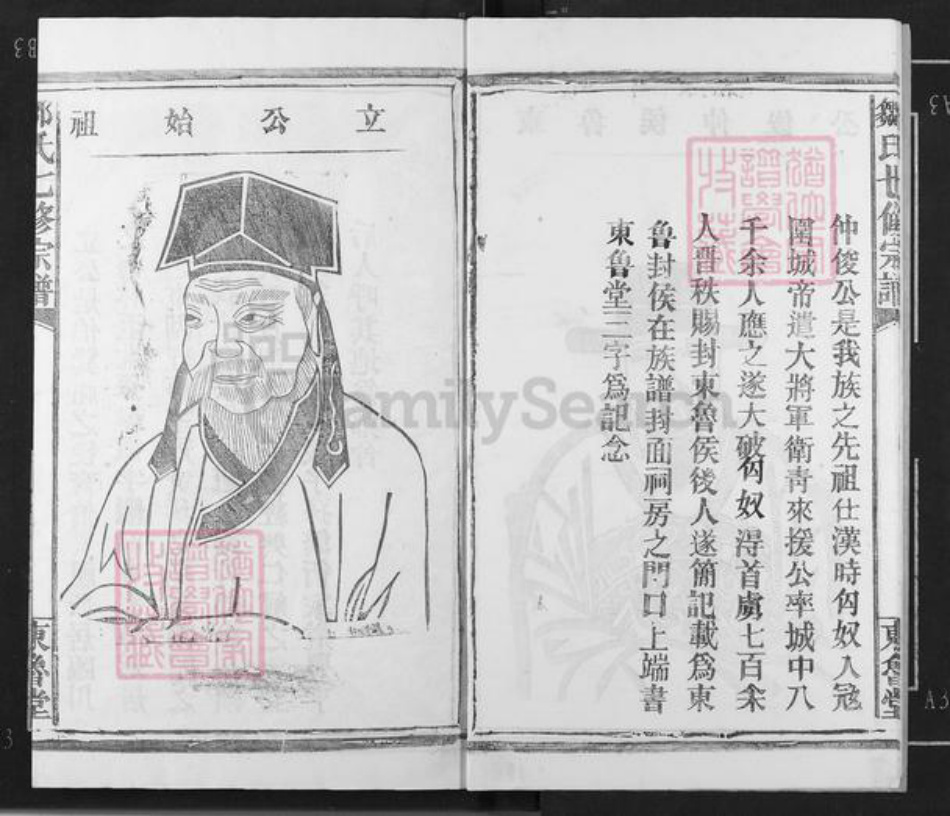 仲俊公是我族之先祖仕漢時匈奴入冦
圍城帝遣大將軍衛青來援公率城中八
千余人應之遂大破匈奴淂首虜七百余
人晋秩賜封東魯侯後人遂簡記載爲東
魯封侯在族譜封面祠房之門口上端書
東魯堂三字爲記念
東魯堂
祖始公立
氏七修宗譜
東魯堂
FamilySearch
A3